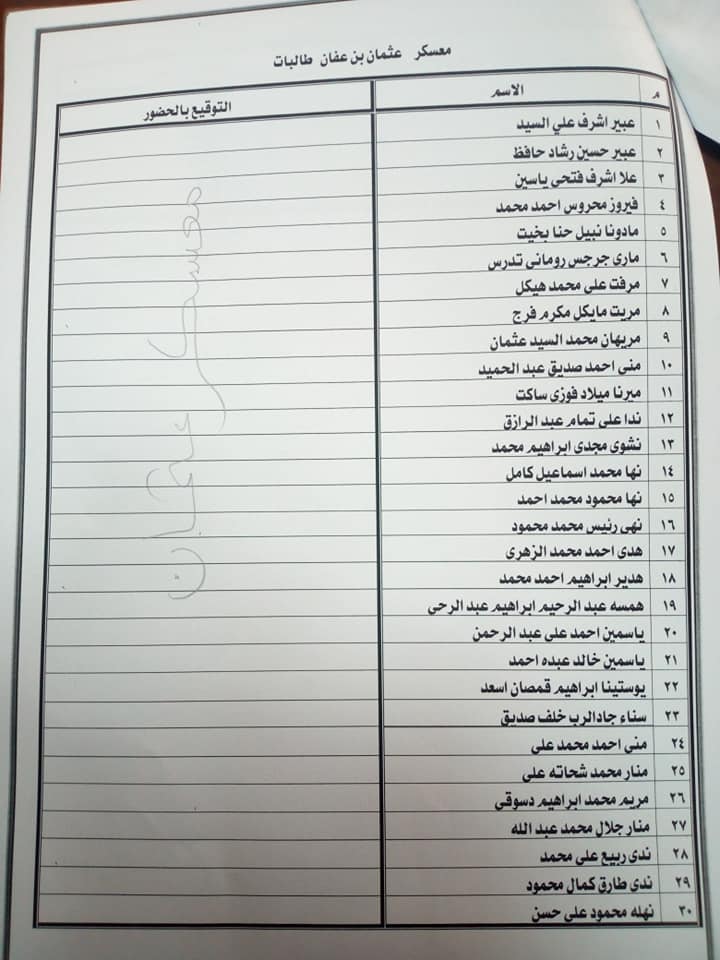 معسكر عثمان بن عفان طالبات
م الاسم التوقيع بالحضور
١ عبير اشرف علي السيد
٢ عبير حسين رشاد حافظ
٣ علا اشرف فتحى ياسين
٤ فيروز محروس احمد محمد
٥ مادونا نبيل حنا بخيت
٦ مارى جرجس رومانى تدرس
٧ مرفت على محمد هيكل
٨ مريت مايكل مكرم فرج
٩ مريهان محمد السيد عثمان
١٠ منى احمد صديق عبد الحميد
١١ ميرنا ميلاد فوزى ساكت
١٢ ندا على تمام عبد الرازق
١٣ نشوى مجدى ابراهيم محمد
١٤ نها محمد اسماعيل كامل
١٥ نها محمود محمد احمد
١٦ نهى رئيس محمد محمود
١٧ هدى احمد محمد الزهرى
١٨ هدير ابراهيم احمد محمد
١٩ همسه عبد الرحيم ابراهيم عبد الرحى
٢٠ ياسمين احمد على عبد الرحمن
٢١ ياسمين خالد عبده احمد
٢٢ يوستينا ابراهيم قمصان اسعد
٢٣ سناء جادالرب خلف صديق
٢٤ منى احمد محمد على
٢٥ منار محمد شحاته على
٢٦ مريم محمد ابراهيم دسوقى
٢٧ منار جلال محمد عبد الله
٢٨ ندى ربيع على محمد
٢٩ ندى طارق كمال محمود
٣٠ نهله محمود على حسن
معسكر عثمان